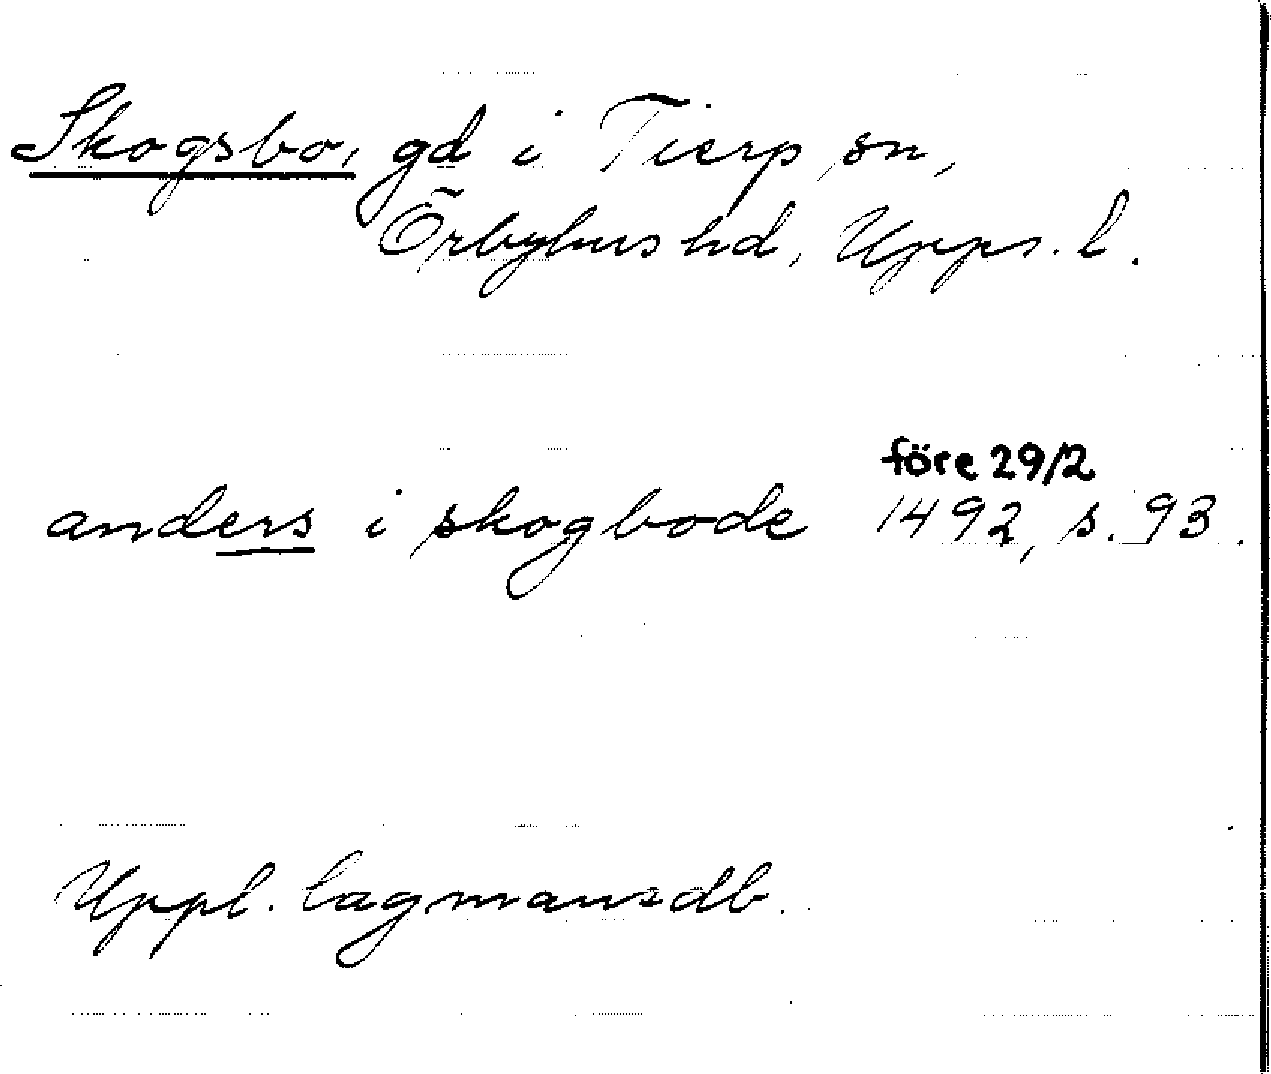 Skogsbo, gd i Tierp sn,
Örbyhus hd, Upps. l.
före 29/2
anders i skogbode 1492, s. 93.
Uppl. lagmansdb.